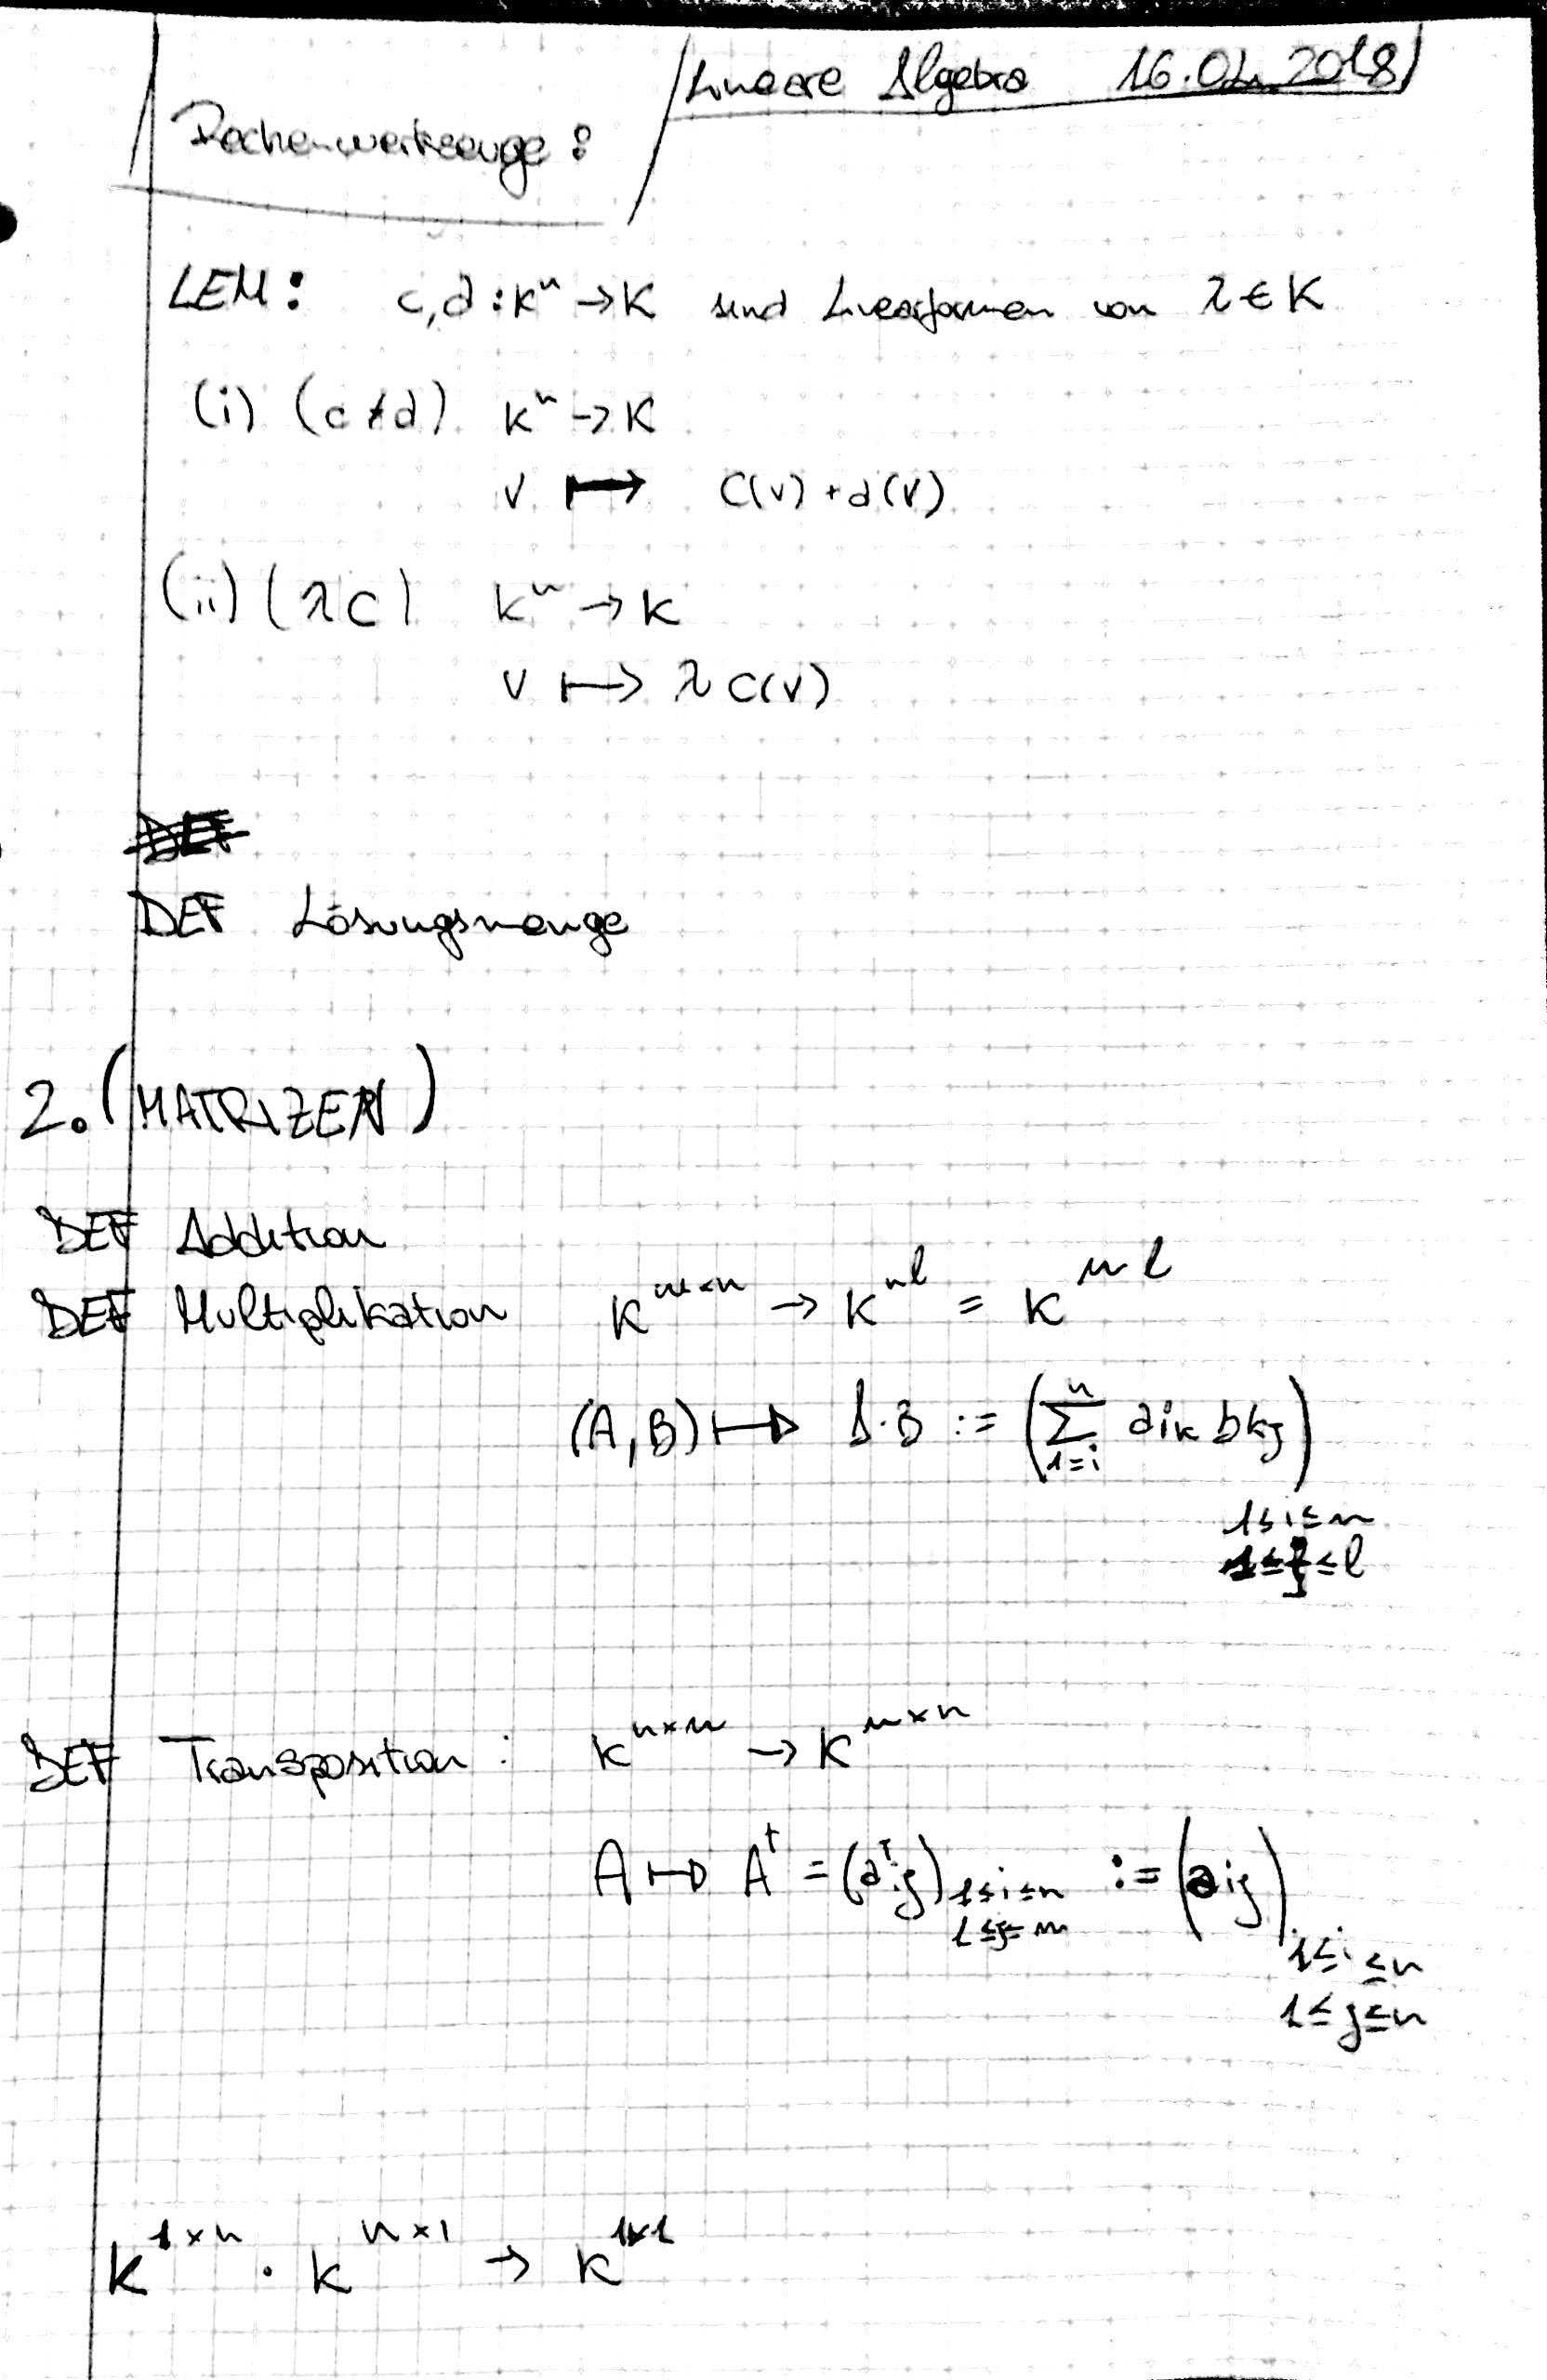 Lineare Algebra 16.02.2018
Rechenwerkzeuge:
LEM: c,d : Kⁿ → K sind Linearformen von λ ∈ K
(i) (c+d) Kⁿ → K
v ↦ c(v) + d(v)
(ii) (λc) Kⁿ → K
v ↦ λ c(v)
DEF Lösungsmenge
2. (MATRIZEN)
DEF Addition
DEF Multiplikation K^{m×n} → K^{nl} = K^{ml}
(A,B) ↦ A·B := (∑_{1=i}^{n} a_{ik} b_{kj})
1≤i≤m
1≤j≤l
DEF Transposition: K^{n×m} → K^{m×n}
A ↦ A^t = (a^t_{ij})_{1≤i≤n} := (a_{ij})
1≤j≤m
1≤i≤n
1≤j≤n
K^{1×n} · K^{n×1} → K^{1×1}